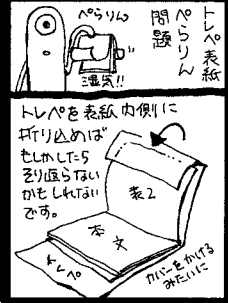 トレペ表紙
ぺらりん
問題
ぺらりん
湿気!!
トレペを表紙内側に
折り込めば
もしかしたら
そり返らない
かもしれない
です。
表2
本文
トレペ
カバーをかける
みたいに